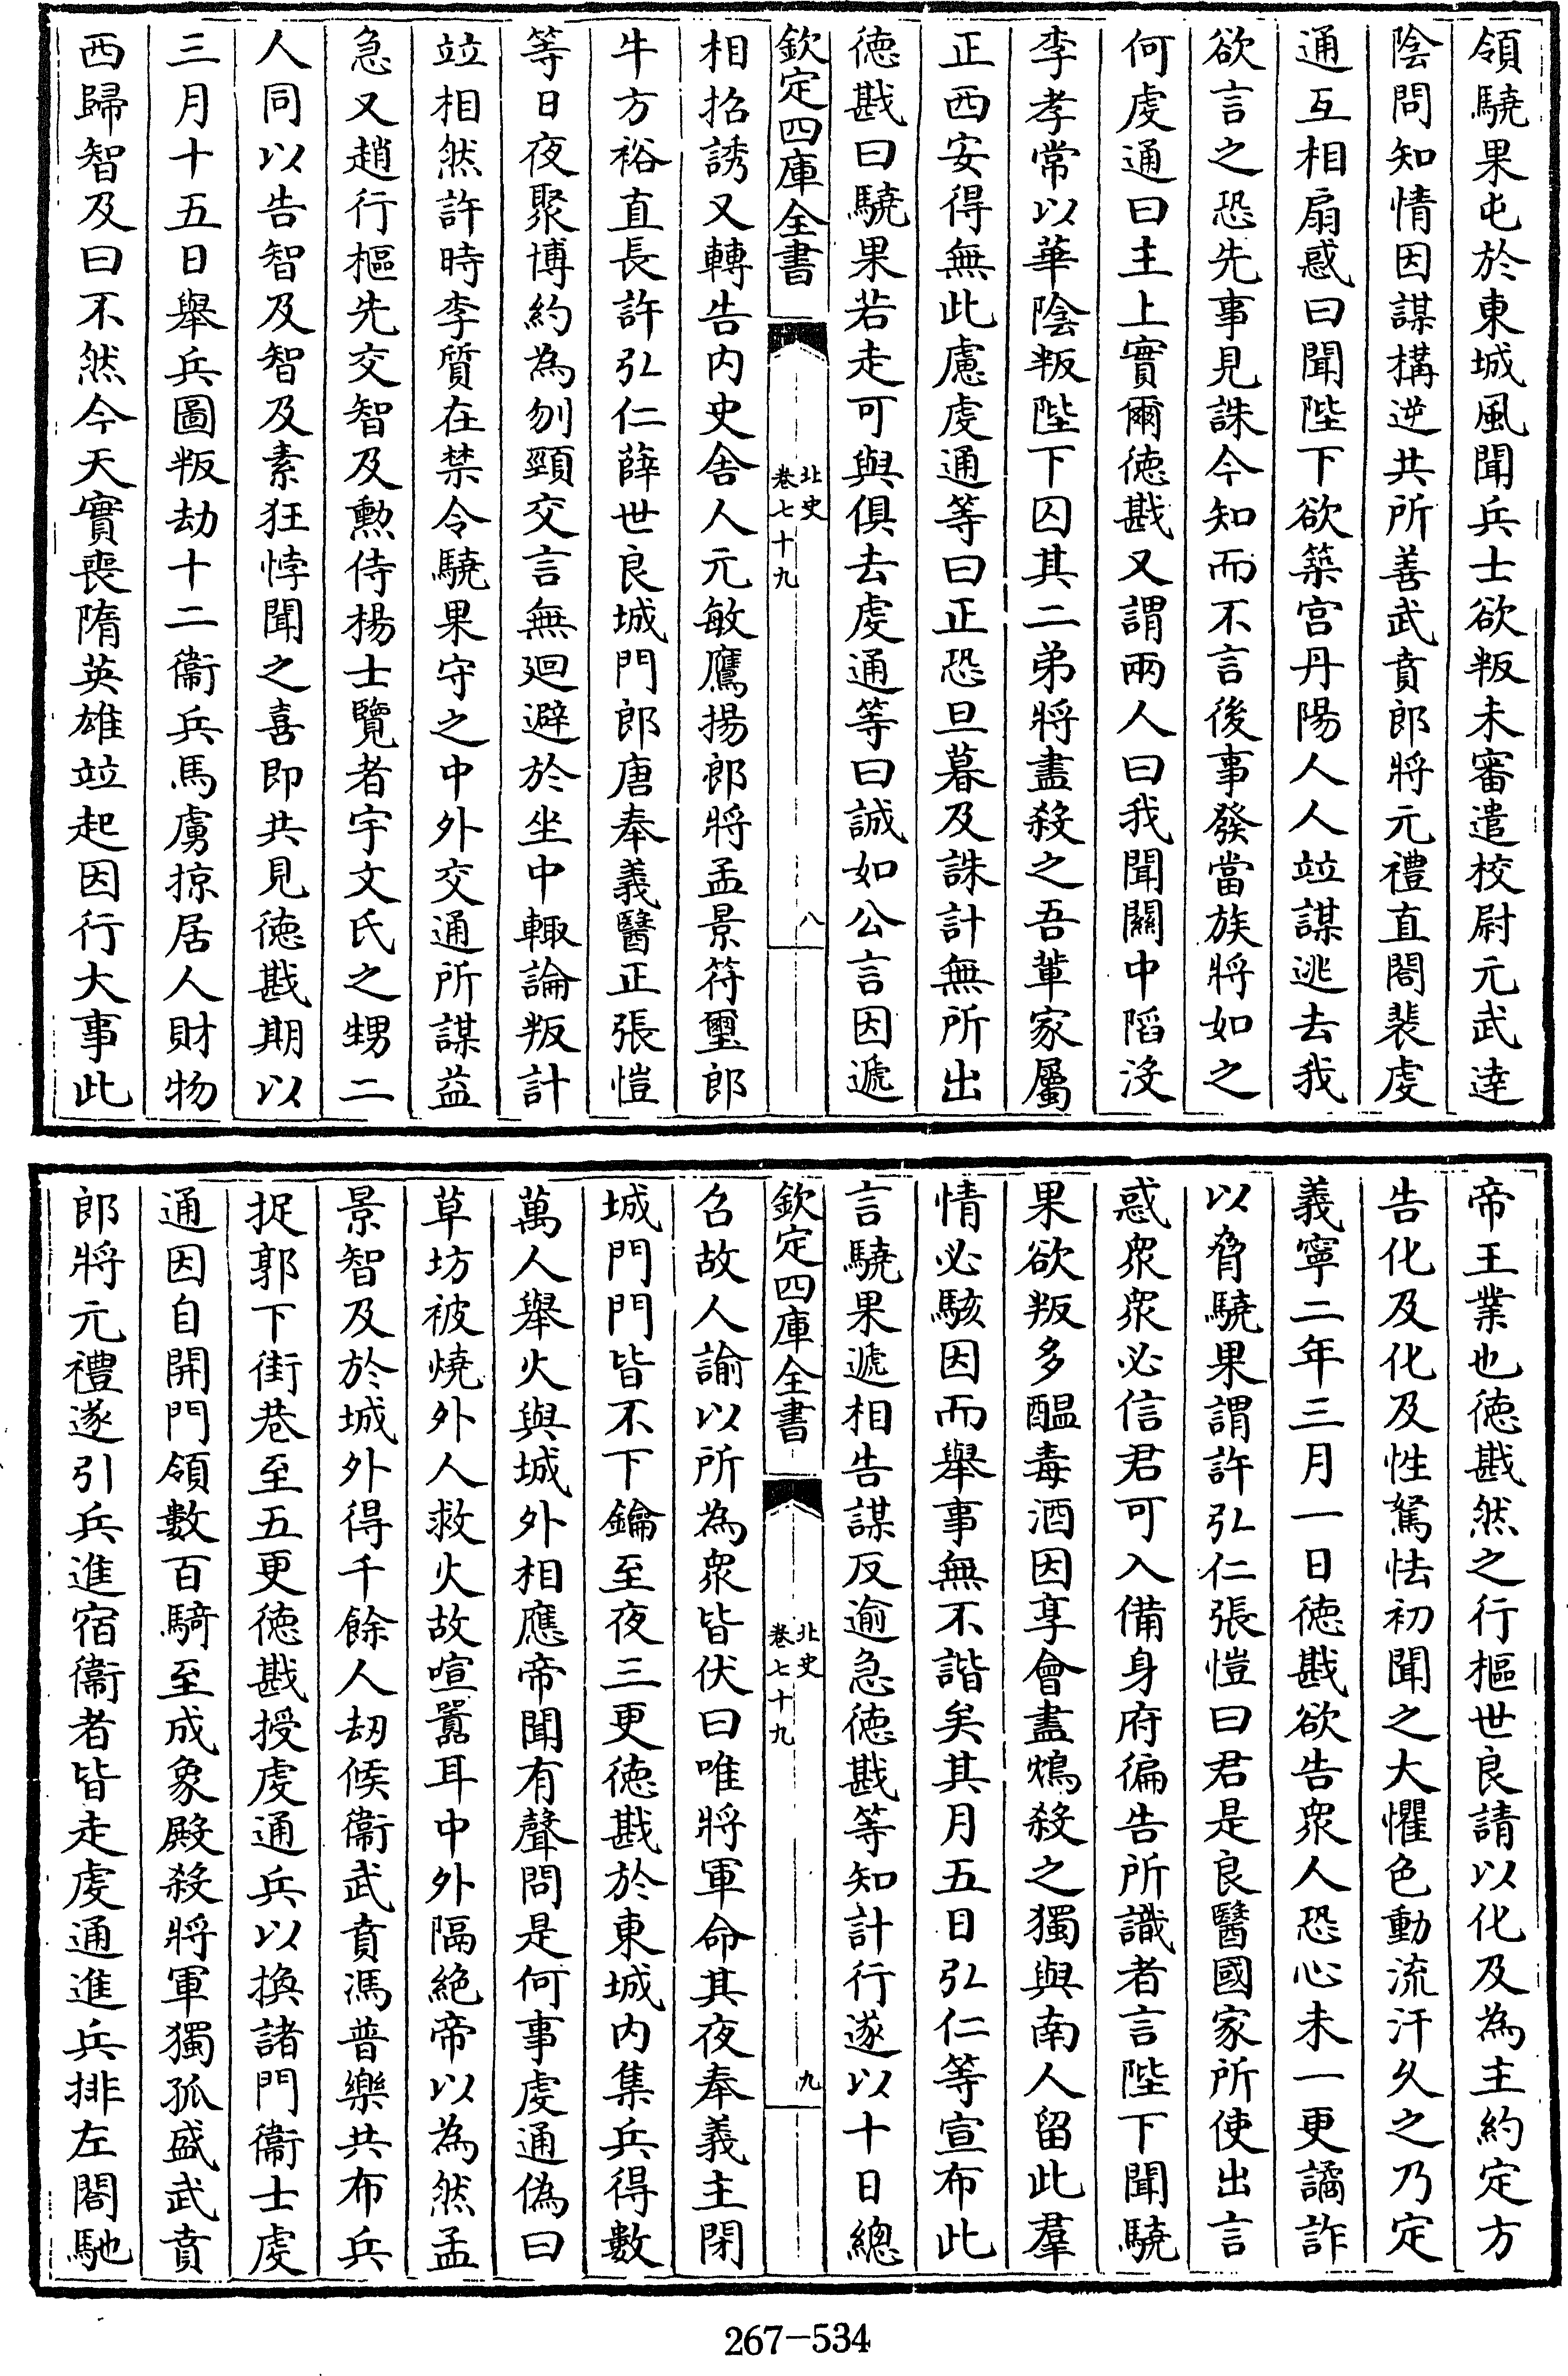 領驍果屯於東城風聞兵士欲叛未審遣校尉元武逹
陰問知情因謀構逆共所善武賁郎將元禮直閤裴虔
通互相扇惑曰聞陛下欲築宫丹陽人人竝謀逃去我
欲言之恐先事見誅今知而不言後事發當族將如之
何虔通曰主上實爾徳戡又謂兩人曰我聞關中䧟没
李孝常以華陰叛陛下囚其二弟將盡殺之吾軰家屬
正西安得無此慮虔通等曰正恐旦暮及誅計無所出
徳戡曰驍果若走可與俱去虔通等曰誠如公言因遞
欽定四庫全書
北史
卷七十九
八
相招誘又轉告内史舍人元敏鷹揚郎將孟景符璽郎
牛方裕直長許弘仁薛世良城門郎唐奉義醫正張愷
等日夜聚博約為刎頸交言無廻避於坐中輙論叛計
竝相然許時李質在禁令驍果守之中外交通所謀益
急又趙行樞先交智及勲侍楊士覽者宇文氏之甥二
人同以告智及智及素狂悖聞之喜即共見徳戡期以
三月十五日舉兵圖叛劫十二衞兵馬虜掠居人財物
西歸智及曰不然今天實喪隋英雄竝起因行大事此
帝王業也徳戡然之行樞世良請以化及為主約定方
告化及化及性駑怯初聞之大懼色動流汗久之乃定
義寧二年三月一日徳戡欲告衆人恐心未一更譎詐
以脅驍果謂許弘仁張愷曰君是良醫國家所使出言
惑衆衆必信君可入備身府徧告所識者言陛下聞驍
果欲叛多醖毒酒因享會盡鴆殺之獨與南人留此羣
情必駭因而舉事無不諧矣其月五日弘仁等宣布此
言驍果遞相告謀反逾急徳戡等知計行遂以十日總
欽定四庫全書
北史
卷七十九
九
召故人諭以所為衆皆伏曰唯將軍命其夜奉義主閉
城門門皆不下鑰至夜三更徳戡於東城内集兵得數
萬人舉火與城外相應帝聞有聲問是何事虔通偽曰
草坊被燒外人救火故喧囂耳中外隔絶帝以為然孟
景智及於城外得千餘人刼候衞武賁馮普樂共布兵
捉郭下街巷至五更徳戡授虔通兵以換諸門衞士虔
通因自開門領數百騎至成象殿殺將軍獨孤盛武賁
郎將元禮遂引兵進宿衞者皆走虔通進兵排左閤馳
267-534